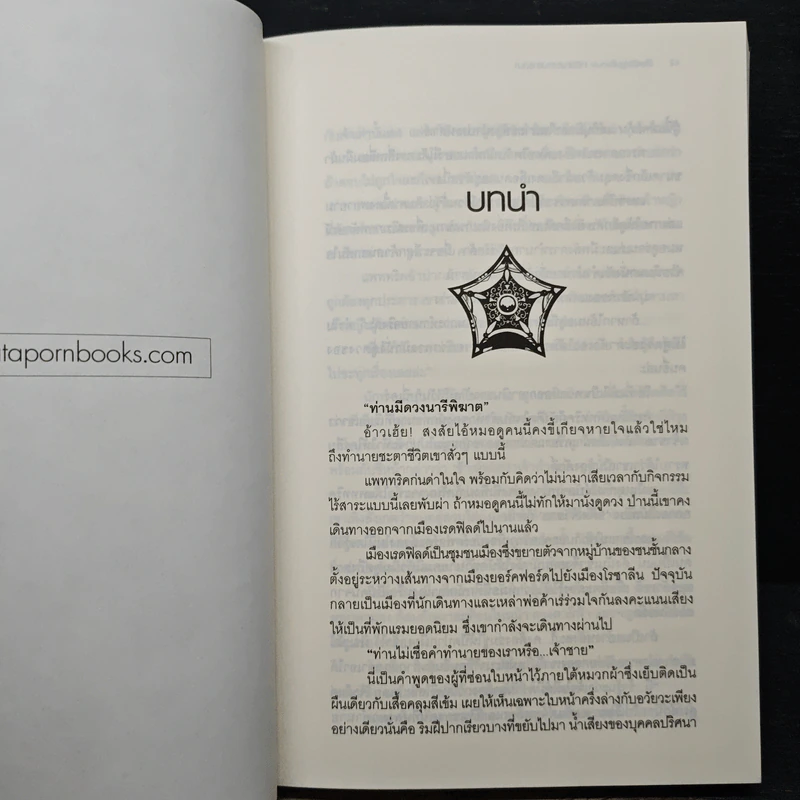 tapornbooks.com
บทนำ
“ท่านมีดวงนารีพิฆาต”
อ้าวเฮ้ย! สงสัยไอ้หมอดูคนนี้คงขี้เกียจหายใจแล้วใช่ไหม
ถึงทำนายชะตาชีวิตเขาสั่วๆ แบบนี้
แพททริคก่นด่าในใจ พร้อมกับคิดว่าไม่น่ามาเสียเวลากับกิจกรรม
ไร้สาระแบบนี้เลยพับผ่า ถ้าหมอดูคนนี้ไม่ทักให้มานั่งดูดวง ป่านนี้เขาคง
เดินทางออกจากเมืองเรดฟิลด์ไปนานแล้ว
เมืองเรดฟิลด์เป็นชุมชนเมืองซึ่งขยายตัวจากหมู่บ้านของชนชั้นกลาง
ตั้งอยู่ระหว่างเส้นทางจากเมืองยอร์คฟอร์ดไปยังเมืองโรซาลีน ปัจจุบัน
กลายเป็นเมืองที่นักเดินทางและเหล่าพ่อค้าเร่ร่วมใจกันลงคะแนนเสียง
ให้เป็นที่พักแรมยอดนิยม ซึ่งเขากำลังจะเดินทางผ่านไป
“ท่านไม่เชื่อคำทำนายของเราหรือ...เจ้าชาย”
นี่เป็นคำพูดของผู้ที่ซ่อนใบหน้าไว้ภายใต้หมวกผ้าซึ่งเย็บติดเป็น
ผืนเดียวกับเสื้อคลุมสีเข้ม เผยให้เห็นเฉพาะใบหน้าครึ่งล่างกับอวัยวะเพียง
อย่างเดียวนั่นคือ ริมฝีปากเรียวบางที่ขยับไปมา น้ำเสียงของบุคคลปริศนา